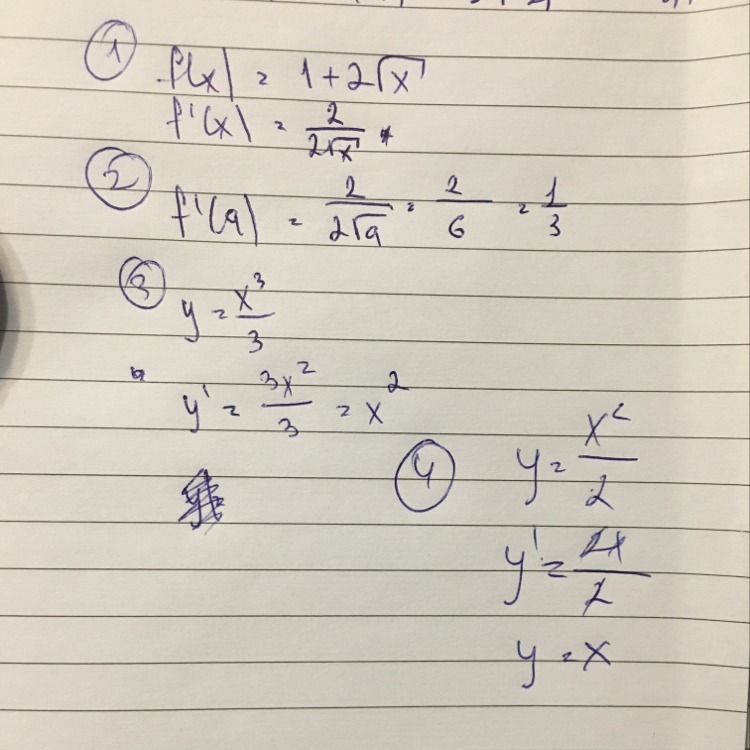 ① f(x) = 1+2√x
f'(x) = 2/(2√x)
② f'(9) = 2/(2√9) = 2/6 = 1/3
③ y = x³/3
y' = 3x²/3 = x²
④ y = x²/2
y' = 2x/2
y = x